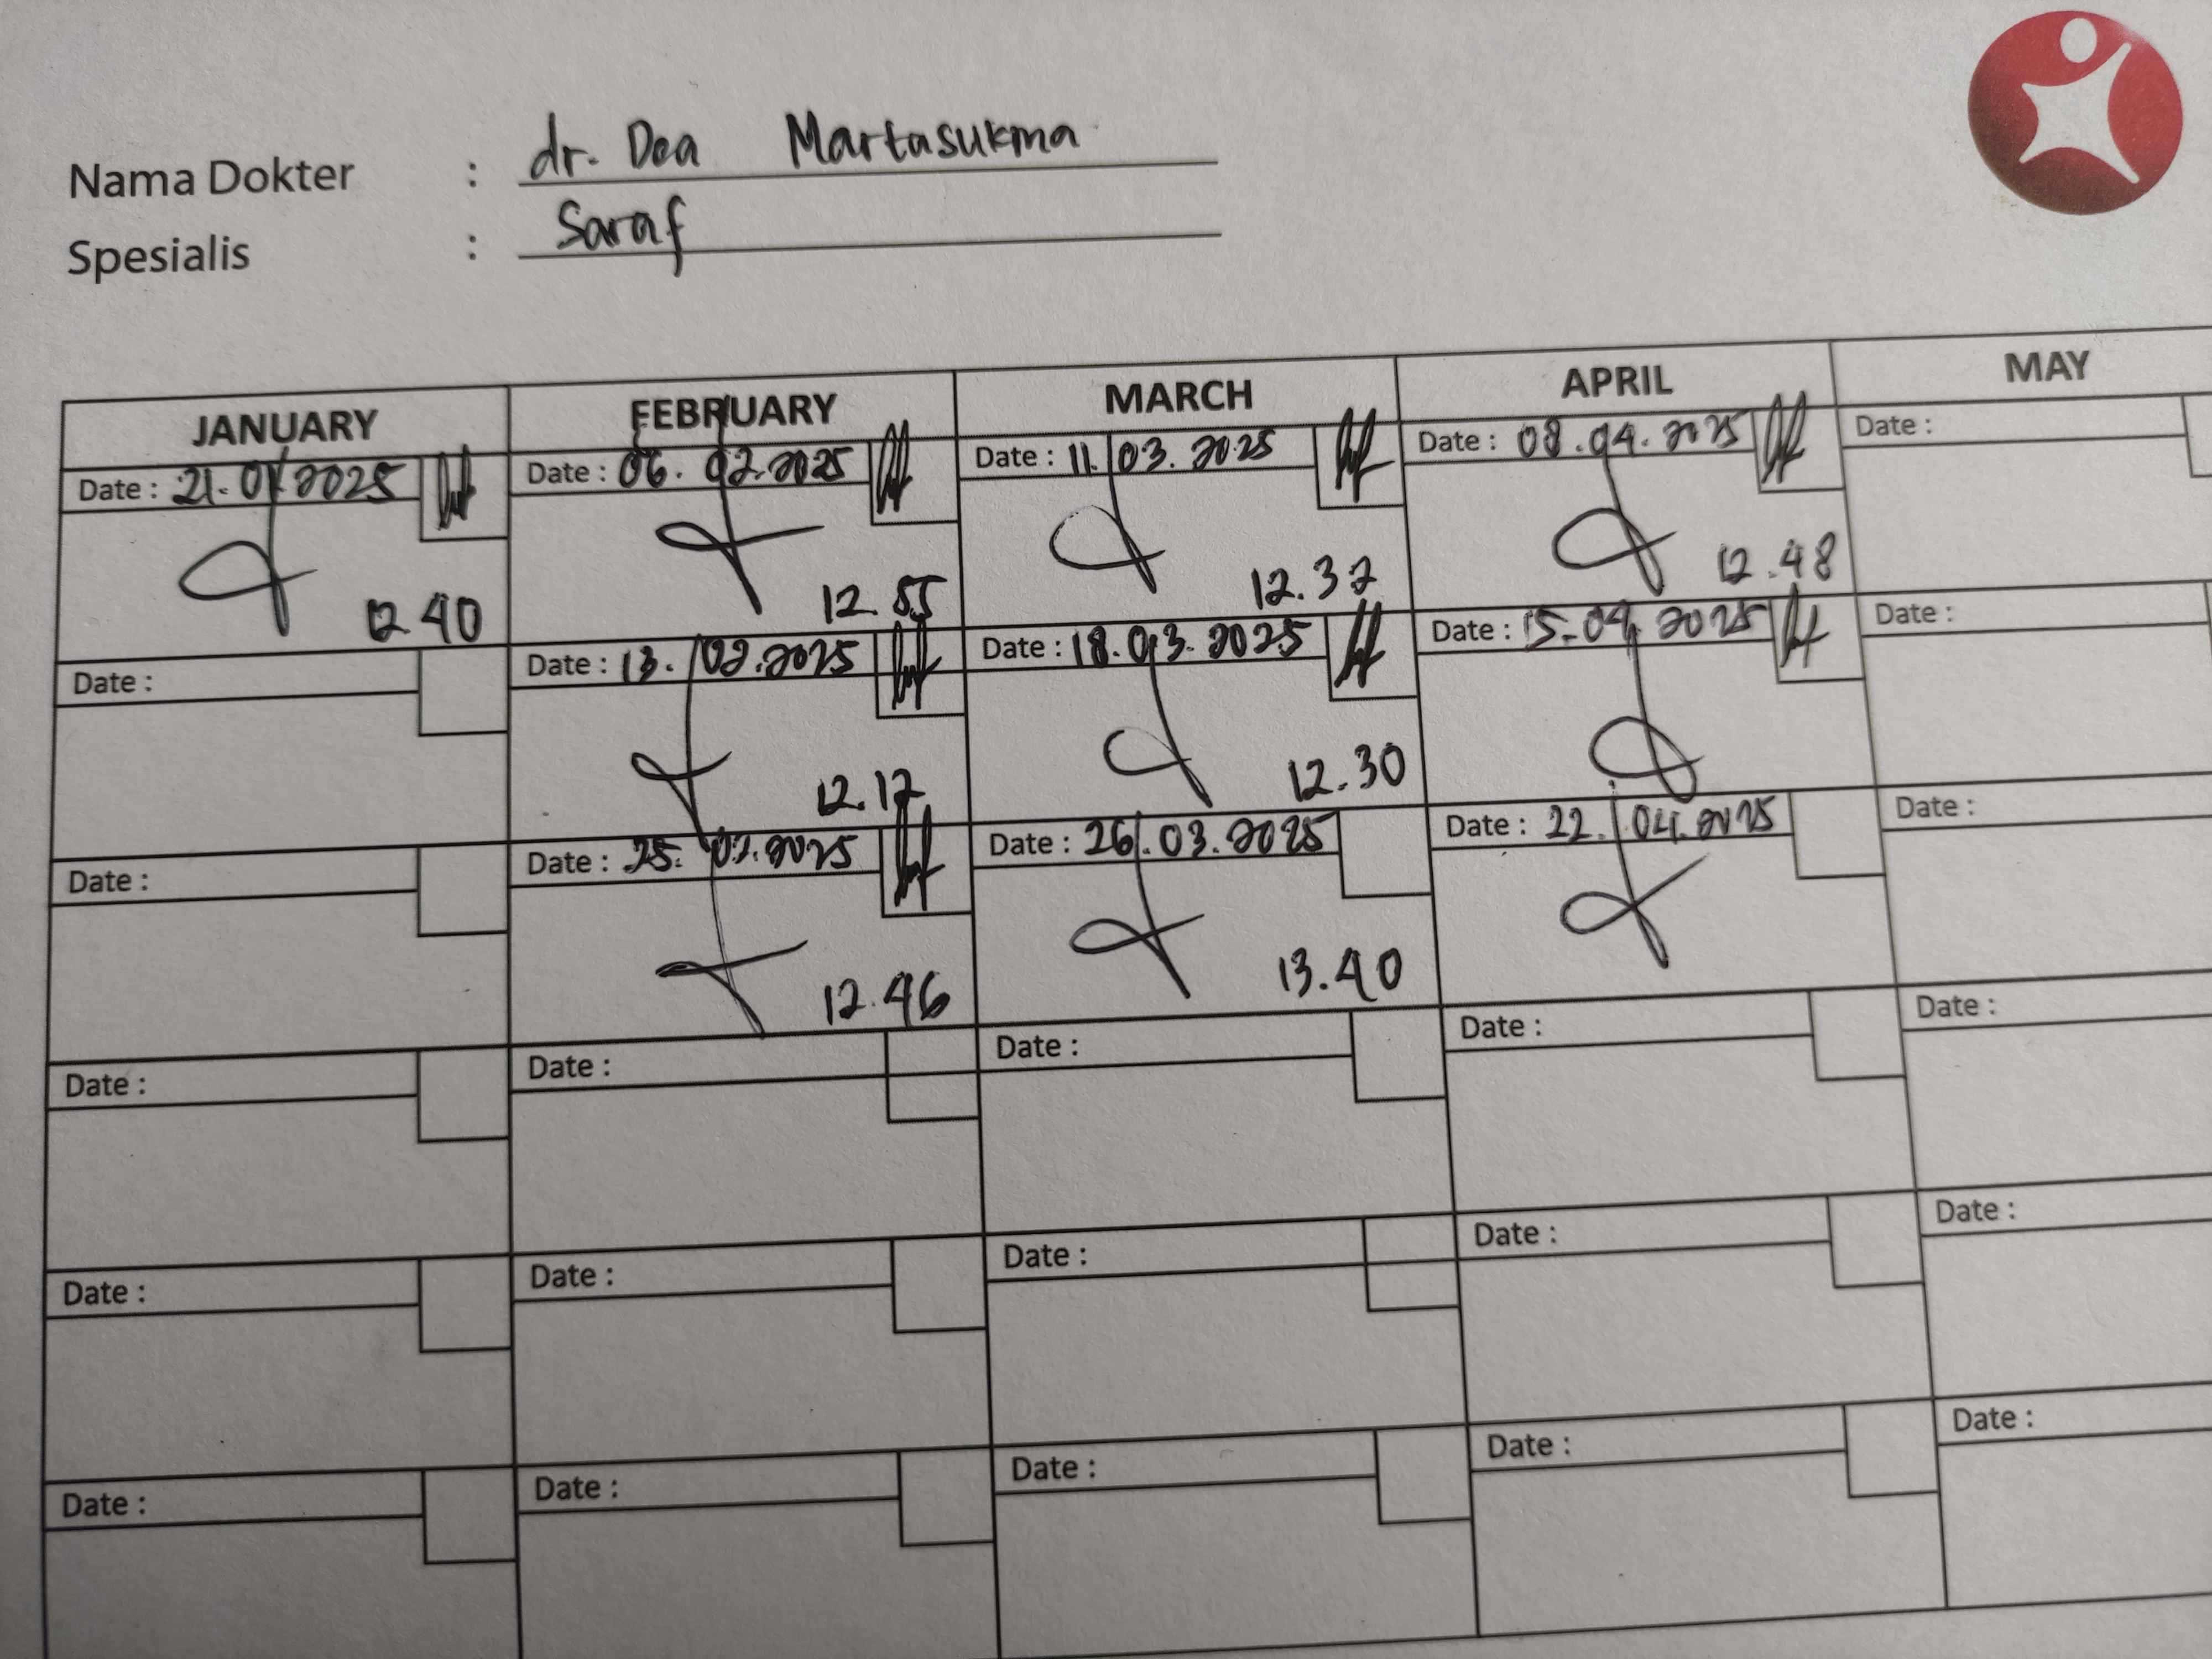 Nama Dokter : dr. Dea Martasukma
Spesialis : Saraf
JANUARY FEBRUARY MARCH APRIL MAY
Date : 21.01.2025 Date : 06.02.2025 Date : 11.03.2025 Date : 08.04.2025 Date :
12.40 12.55 12.37 12.48
Date : Date : 13.02.2025 Date : 18.03.2025 Date : 15.04.2025 Date :
12.17 12.30
Date : Date : 25.02.2025 Date : 26.03.2025 Date : 22.04.2025 Date :
12.46 13.40
Date : Date : Date : Date : Date :
Date : Date : Date : Date : Date :
Date : Date : Date : Date : Date :